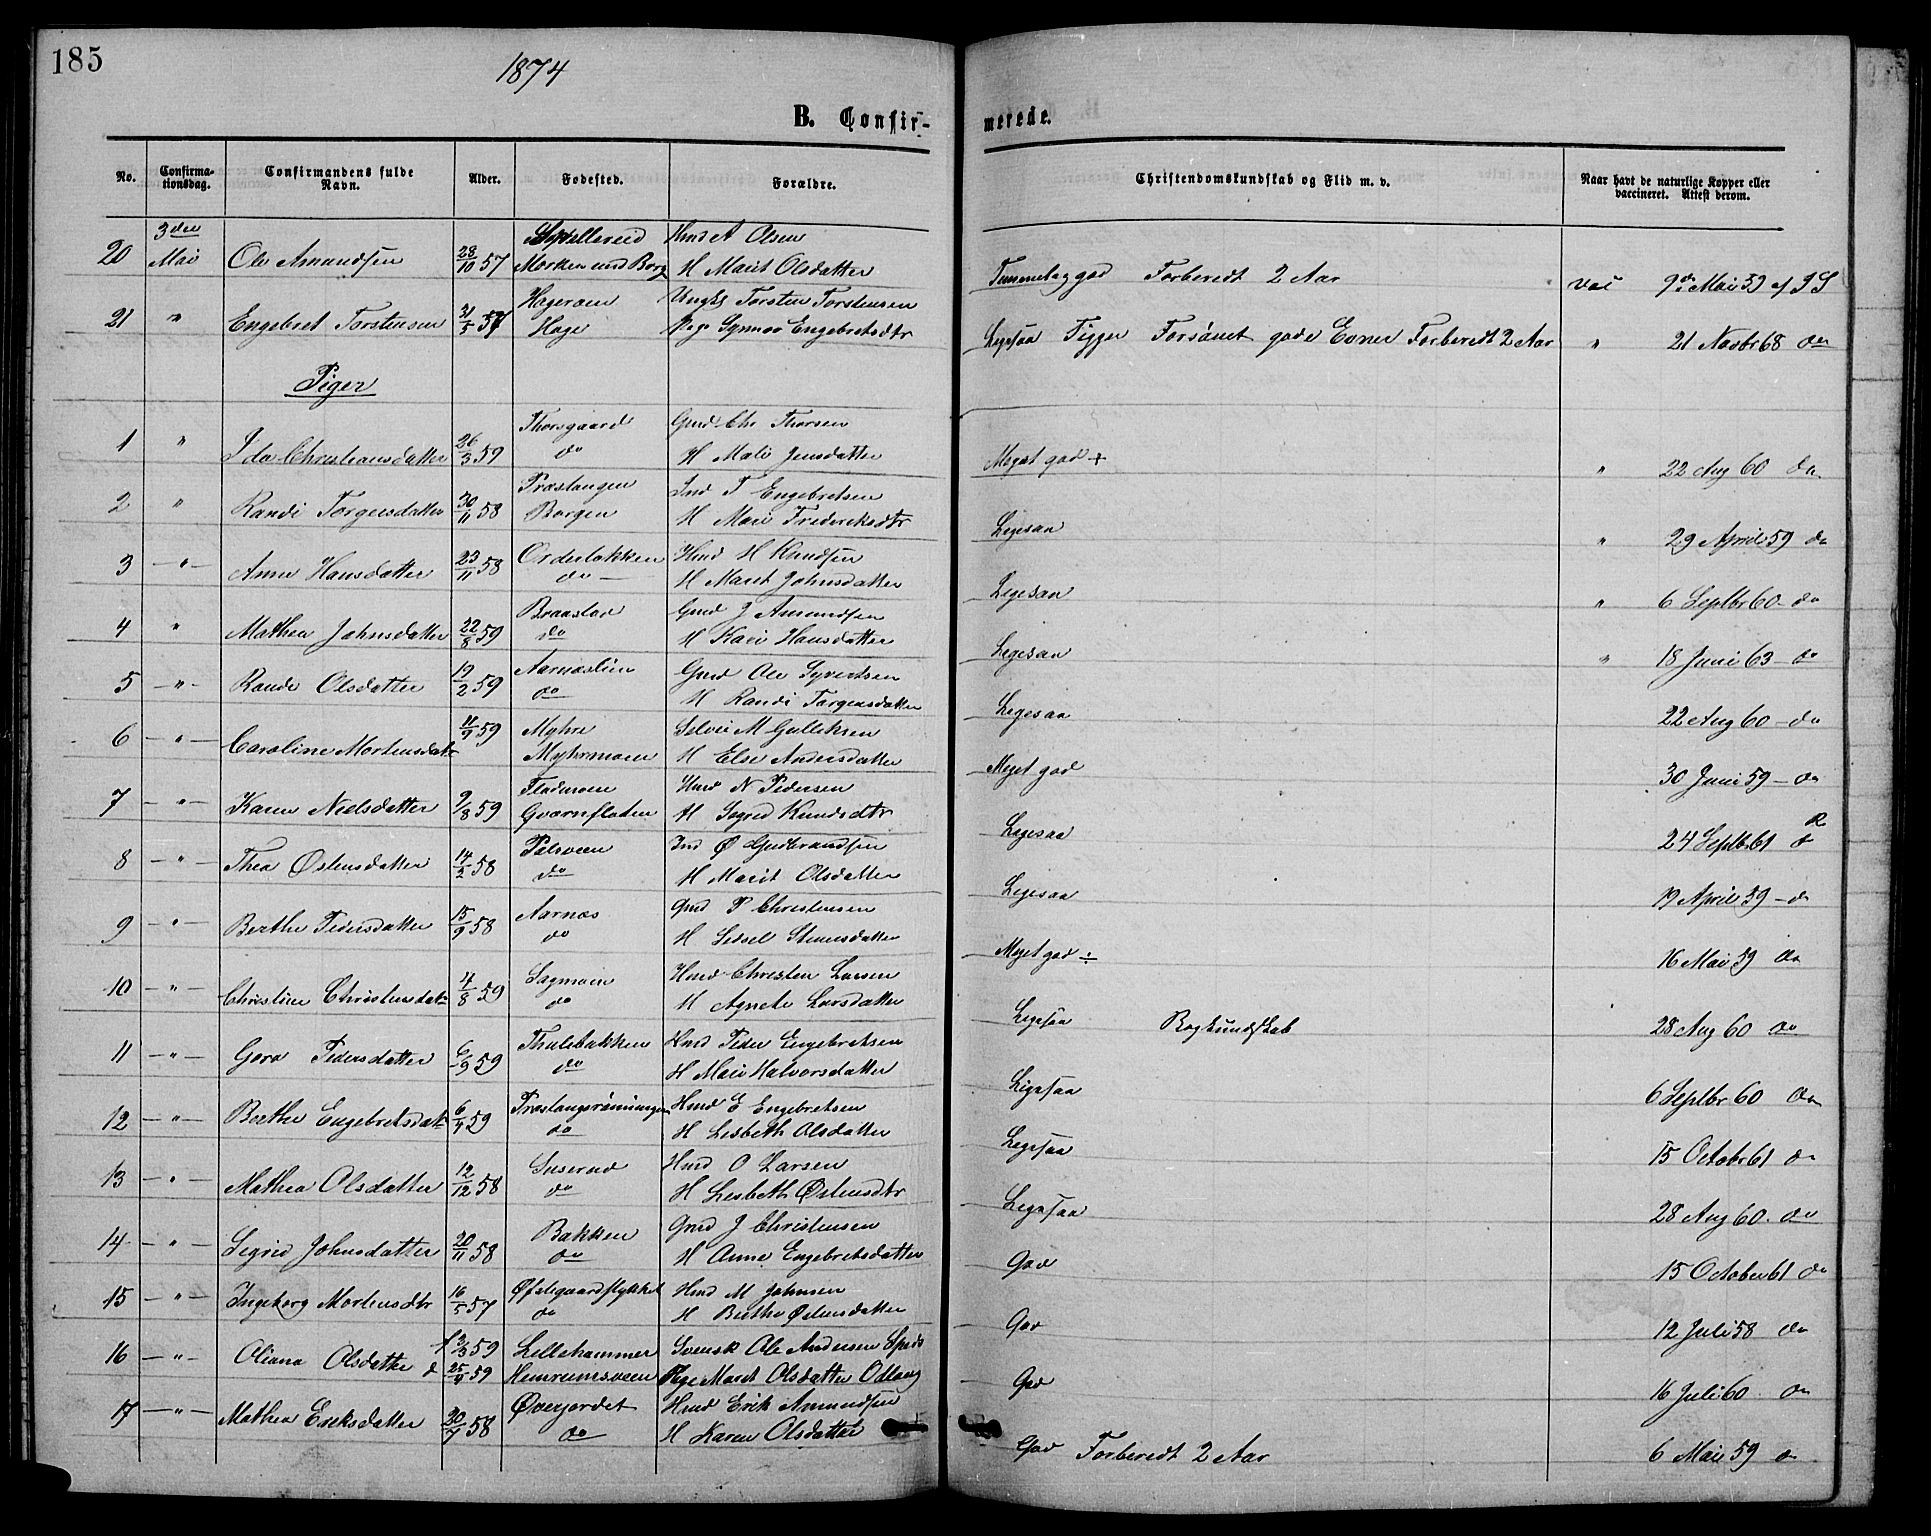 185
1874
B. Confir-
merede.
No.
Confirma-
tionsdag.
Confirmandens fulde
Navn.
Alder.
Fodested.
Forældre.
Christendomskundskab og Flid m. v.
Naar havt de naturlige Kopper eller
vaccineret. Attest derom.
3die Hmd A Olsen
20 Mai Ole Amundsen 28/10 57 Morken und Borg H Marit Olsdatter Temmelig god Forberedt 2 Aar vac 9de Mai 59 af
Hageroen Ungkl Torsten Torstensen
21 " Engebret Torstensen 31/5 57 Hage Pige Synnøv Engebretsdtr Ligesaa Forsømt gode Evner Forberedt 2 Aar " 21 Novbr 68 do
Piger
Thorsgaard Gmd Chr Thorsen
1 " Ida Christiansdatter 26/3 59 do H Mali Jensdatter Meget god + " 22 Aug 60 do
Præstangen Ind T Engebretsen
2 " Randi Torgersdatter 30/11 58 Borgen H Mari Frederiksdtr Ligesaa " 29 April 59 do
Orderløkken Hmd H Knudsen
3 -"- Anne Hansdatter 23/11 58 do H Marit Johnsdatter Ligesaa " 6 Septbr 60 - do
Braastad Gmd J Amundsen
4 " Mathea Johnsdatter 22/8 59 do H Kari Hansdatter Ligesaa " 18 Juni 63 - do
Aarnæslien Gmd Ole Syvertsen
5 -"- Randi Olsdatter 19/2 59 do H Randi Torgersdatter Ligesaa 22 Aug 60 - do
Myhre Selvei M Gulleksen
6 -"- Caroline Mortensdatr 11/9 59 Myhrmoen H Else Andersdatter Meget god 30 Juni 59 - do
Flodmoen Hmd N Pedersen
7 -"- Karen Nielsdatter 9/8 59 Qværnfloden H Sigrid Knudsdtr Ligesaa 24 Septbr 61 R
Pælsveen Ind Ø Gudbrandsen
8 -"- Thea Østensdatter 14/2 58 do H Marit Olsdatter Ligesaa 19 April 59 - do
Aarnæs Gmd P Christensen
9 -"- Berthe Pedersdatter 15/9 58 do H Sidsel Steensdatter Meget god ÷ 16 Mai 59 do
Sagmoen Hmd Christen Larsen
10 -"- Christine Christensdatr 4/8 59 do H Agnete Larsdatter Ligesaa Bogkundskab 28 Aug 60 do
Thulebakken Hmd Peder Engebretsen
11 -"- Goro Pedersdatter 6/9 59 do H Mari Halvorsdatter Ligesaa 6 Septbr 60 do
Præstangsrönningen Hmd E Engebretsen
12 -"- Berthe Engebretsdatr 6/4 59 do H Lisbeth Olsdatter Ligesaa 15 Octobr 61 do
Suserud Hmd O Larsen
13 -"- Mathea Olsdatter 12/12 58 do H Lisbeth Østensdtr Ligesaa 28 Aug 60. do
Bakken Gmd J Christensen
14 -"- Sigrid Johnsdatter 20/11 58 do H Anne Engebretsdatter God 15 October 61 do
Øfstegaardstykket Hmd M Johnsen
15 -"- Ingeborg Mortensdtr 16/5 57 do H Berthe Østensdatter God 12 Juli 58 do
f 3/3 59 Lillehammer Svensk Ole Andersen
16 -"- Oliana Olsdatter d 25/4 59 Pige Marit Olsdatter God 16 Juli 60 do
Øverjordet Hmd Erik Amundsen
17 -"- Mathea Eriksdatter 30/7 58 do H Karen Olsdatter God Forberedt 2 Aar 6 Mai 59 do